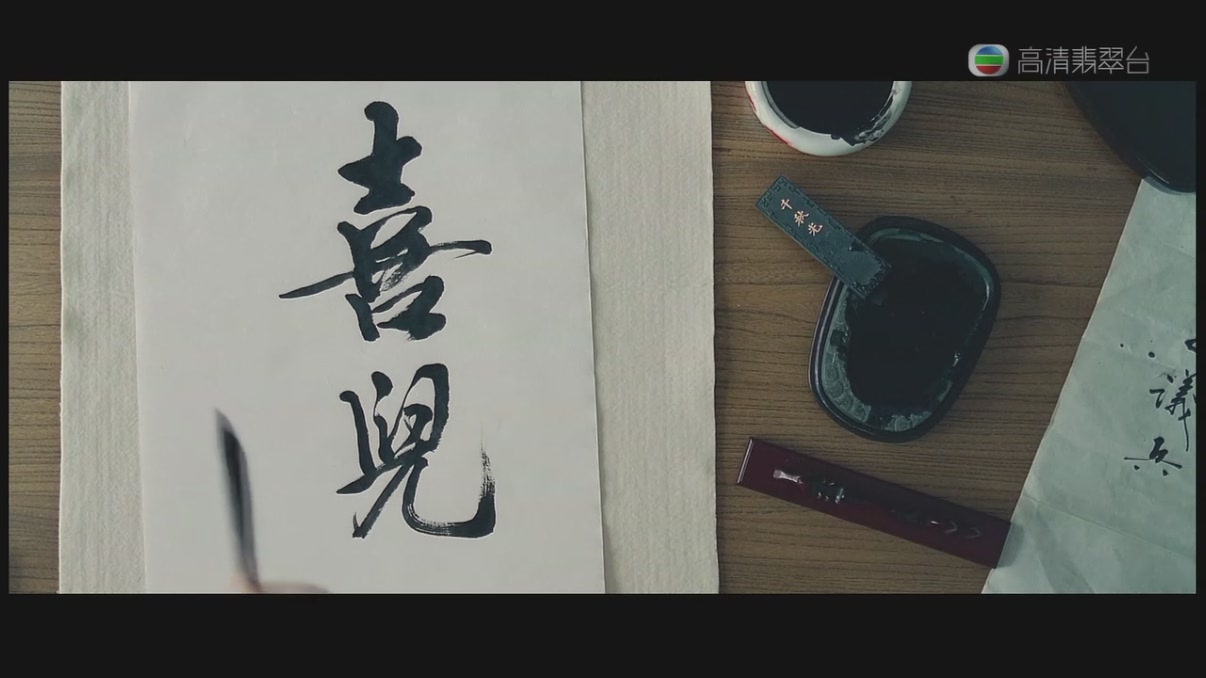 高清翡翠台
喜
兒
千秋光
議
兵